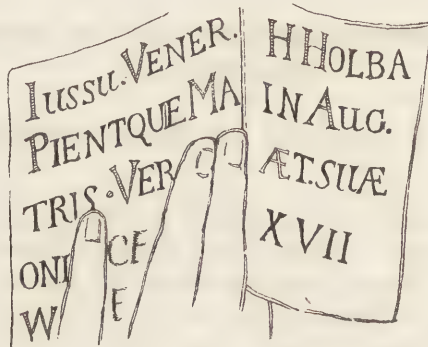 IUSSU·VENER.
PIENTQUE MA
TRIS·VER
ONI CE
W E
H HOLBA
IN AUG.
ÆT.SUÆ
XVII